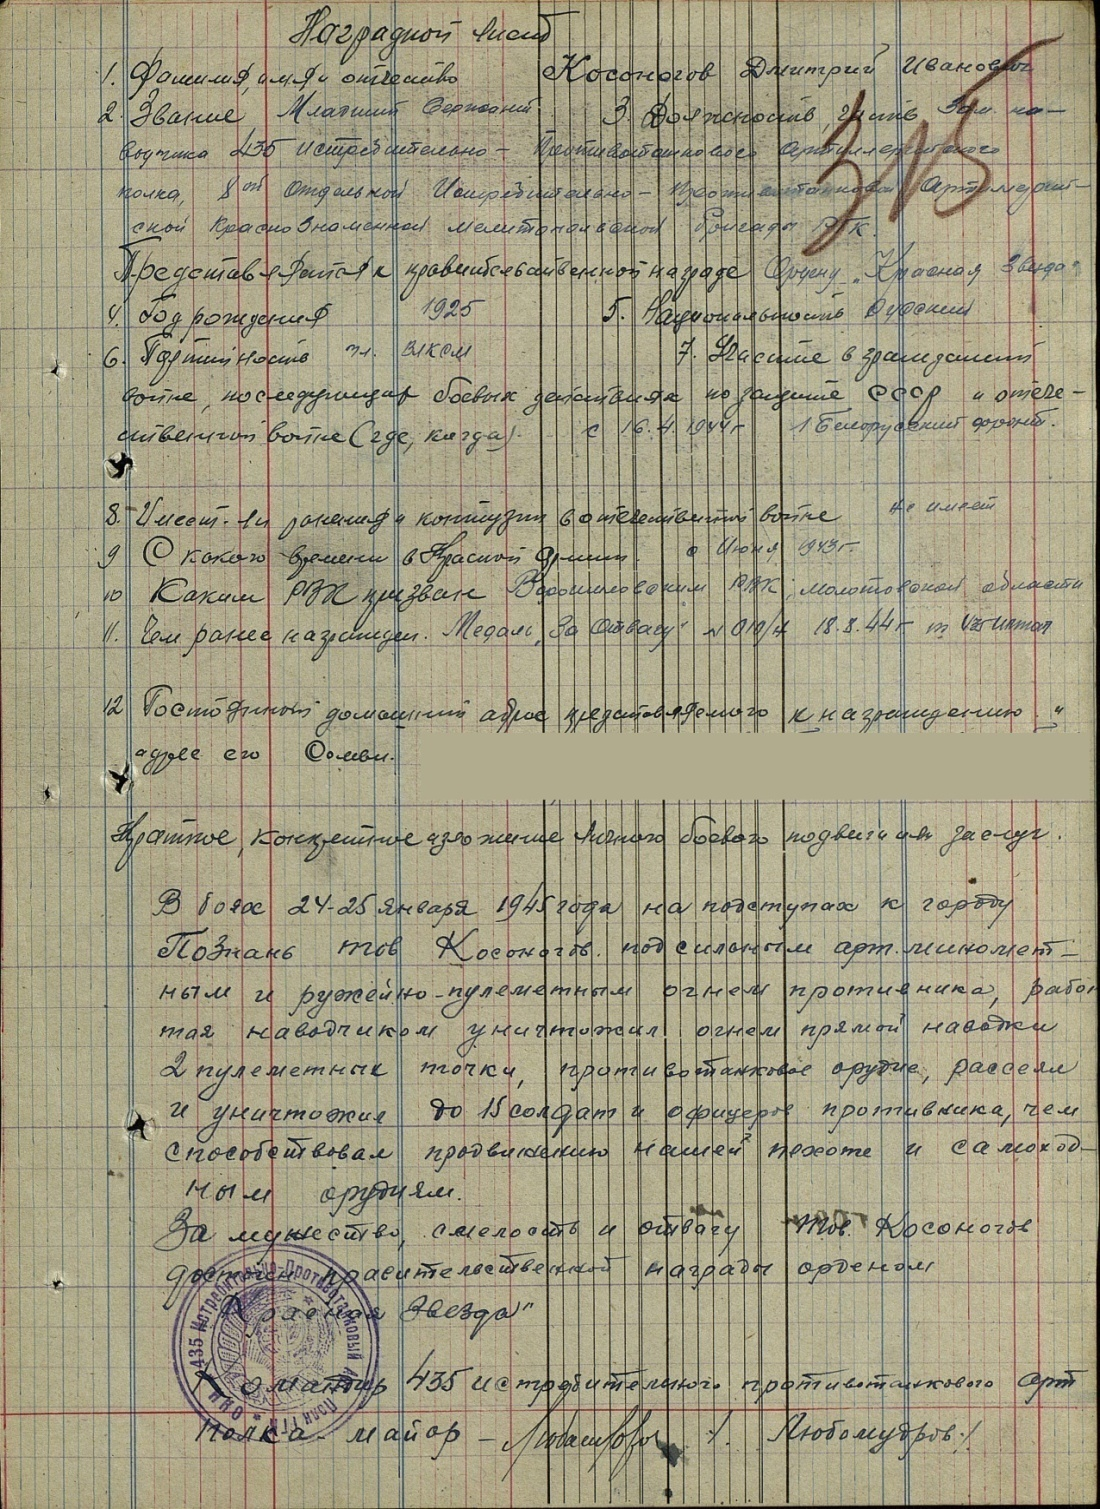 Наградной лист
1. Фамилия, имя и отчество Косоногов Дмитрий Иванович
2. Звание Младший Сержант 3. Должность, часть Зам. на-
водчика 435 истребительно-Противотанкового артиллерийского
полка, 8ой отдельной Истребительно-противотанковой Артиллерий-
ской Краснознаменной мелитопольской бригады РГК.
315
Представляется к правительственной награде Ордену "Красная Звезда"
4. Год рождения 1925 5. Национальность Русский
6. Партийность чл. ВЛКСМ 7. Участие в гражданской
войне, последующих боевых действиях по защите СССР и отече-
ственной войне (где, когда). с 16.4.1944г 1 Белорусский фронт.
8. Имеет ли ранения и контузии в отечественной войне не имеет
9 С какого времени в Красной Армии. с Июня 1943г.
10 Каким РВК призван Ворошиловским РВК, молотовской области
11. Чем ранее награжден. Медаль "За Отвагу" 18.8.44г
12 Постоянный домашний адрес представляемого к награждению и
адрес его Семьи.
Краткое, конкретное изложение личного боевого подвига или заслуг.
В боях 24-25 января 1945 года на подступах к городу
Познань тов Косоногов. под сильным арт. миномет-
ным и ружейно-пулеметным огнем противника, рабо
тая наводчиком уничтожил огнем прямой наводки
2 пулеметных точки, противотанковое орудие, рассеял
и уничтожил до 15 солдат и офицеров противника, чем
способствовал продвижению нашей пехоте и самоход-
ным орудиям.
За мужество, смелость и отвагу тов. Косоногов
достоен правительственной награды орденом
"Красная Звезда"
435 Истребительно-Противотанковый
Командир 435 истребительного противотанкового арт
полка - майор - /Любомудров/